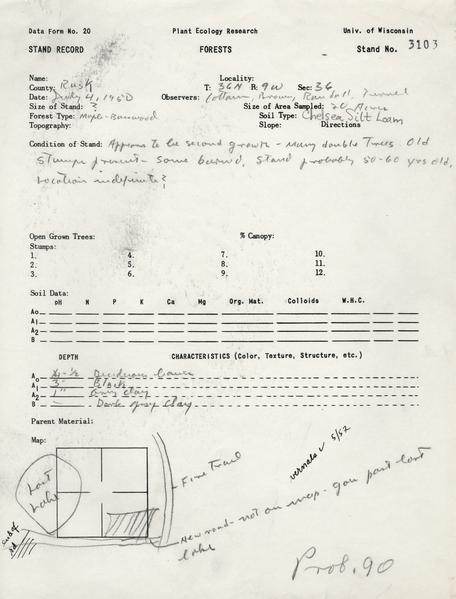 Data Form No. 20 Plant Ecology Research Univ. of Wisconsin
STAND RECORD FORESTS Stand No. 3103
Name: Locality:
County: Rusk T: 36N R: 9W Sec: 36
Date: July 4, 1950 Observers: Cottam, Brown, Randall,
Size of Stand: ? Size of Area Sampled: 20 Acres
Forest Type: Maple-Basswood Soil Type: Chelsea Silt Loam
Topography: Slope: Directions
Condition of Stand: Appears to be second growth - Many double Trees. Old
Stumps present - some burned, Stand probably 50-60 yrs old,
Location indefinite?
Open Grown Trees: % Canopy:
Stumps:
1. 4. 7. 10.
2. 5. 8. 11.
3. 6. 9. 12.
Soil Data:
pH N P K Ca Mg Org. Mat. Colloids W.H.C.
Ao
A1
A2
B
DEPTH CHARACTERISTICS (Color, Texture, Structure, etc.)
Ao Deciduous leaves
A1 3" Black
A2 1" Grey Clay
B — Dark grey Clay
Parent Material:
Map:
vernals ✓ 5/52
Lost Lake
Fire Trail
New road - not on map - you past lost
lake
end of rd
Prob. 90